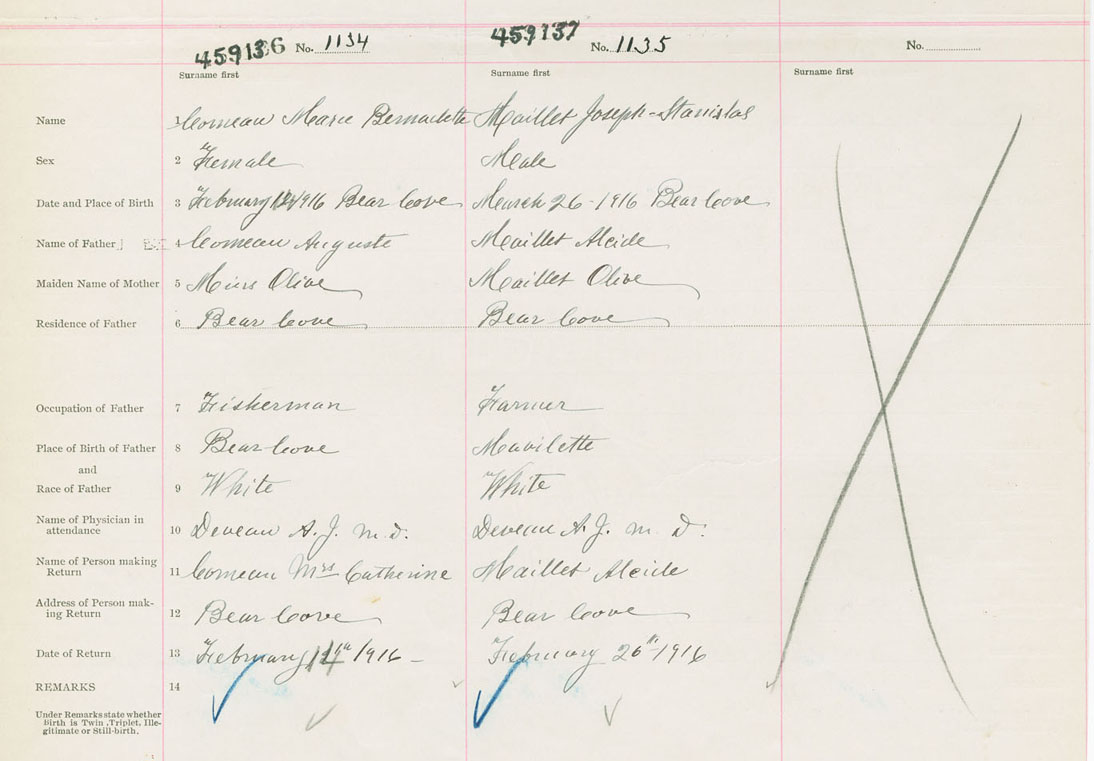 459136 No. 1134 459137 No. 1135 No.
Surname first Surname first Surname first
Name 1 Comeau Marie Bernadette Maillet Joseph-Stanislas
Sex 2 Female Male
Date and Place of Birth 3 February 1916 Bear Cove March 26-1916 Bear Cove
Name of Father 4 Comeau Auguste Maillet Alcide
Maiden Name of Mother 5 Mius Olive Maillet Olive
Residence of Father 6 Bear Cove Bear Cove
Occupation of Father 7 Fisherman Farmer
Place of Birth of Father 8 Bear Cove Mavilette
and
Race of Father 9 White White
Name of Physician in
attendance 10 Deveau A. J. M. D. Deveau A. J. M. D.
Name of Person making
Return 11 Comeau Mrs Catherine Maillet Alcide
Address of Person mak-
ing Return 12 Bear Cove Bear Cove
Date of Return 13 February 14th/1916 - February 26th-1916
REMARKS 14
Under Remarks state whether
Birth is Twin, Triplet, Ille-
gitimate or Still-birth.